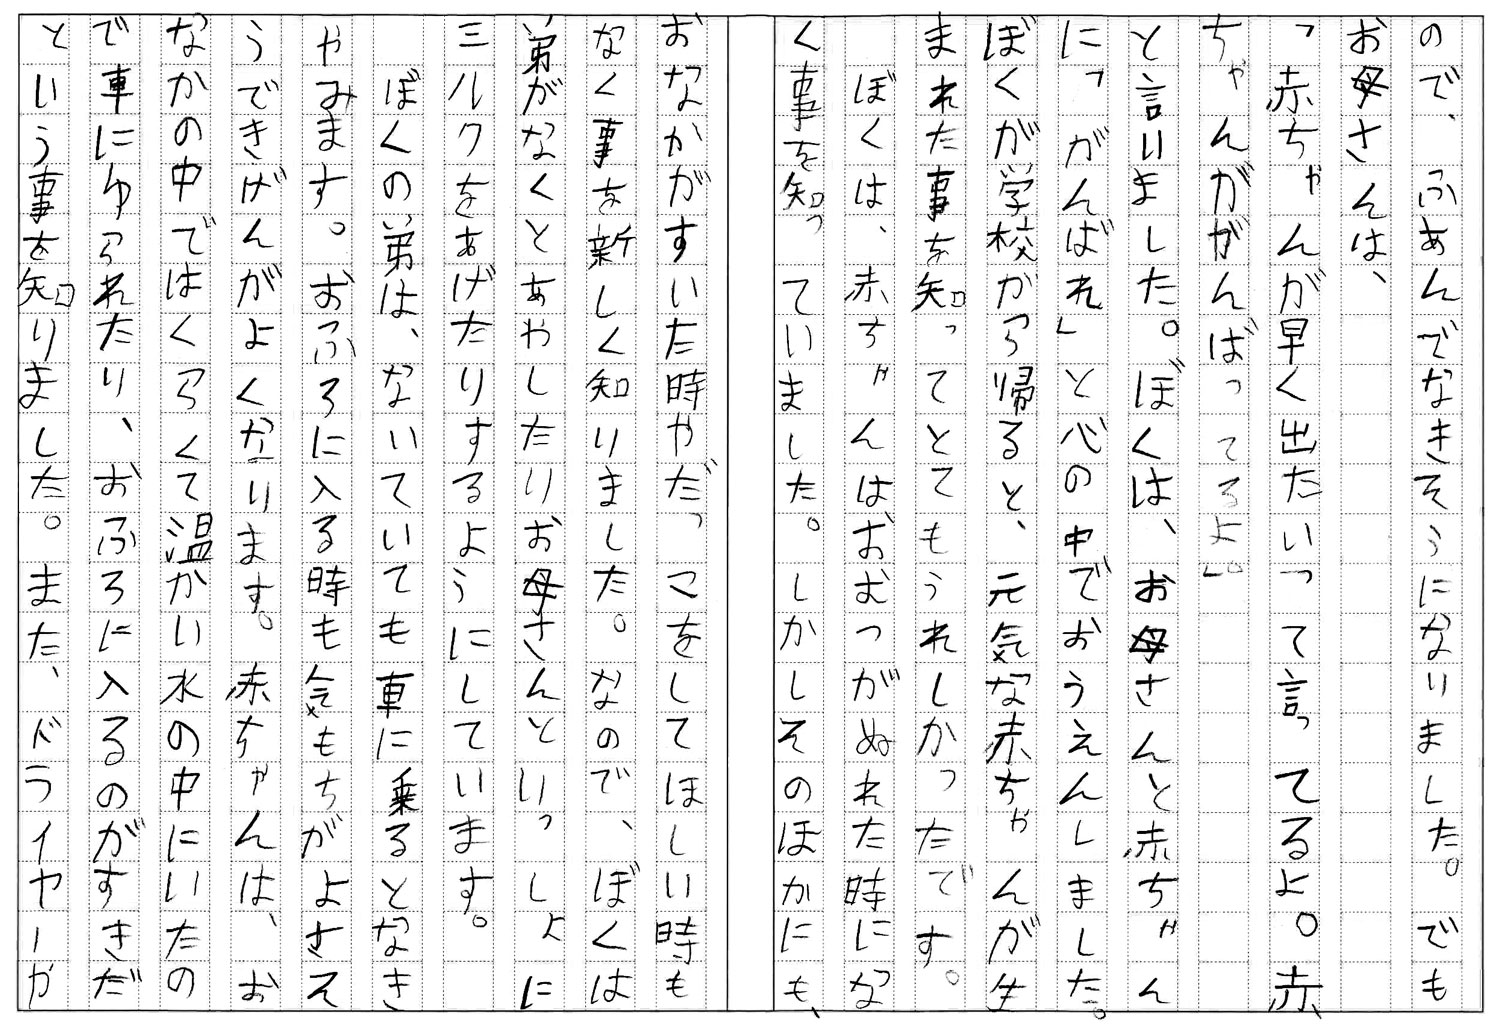 ので、ふあんでなきそうになりました。でも
お母さんは、
「赤ちゃんが早く出たいって言ってるよ。赤
ちゃんががんばってるよ。」
と言いました。ぼくは、お母さんと赤ちゃん
に「がんばれ」と心の中でおうえんしました。
ぼくが学校から帰ると、元気な赤ちゃんが生
まれた事を知ってとてもうれしかったです。
ぼくは、赤ちゃんはおむつがぬれた時にな
く事を知っていました。しかしそのほかにも、
おなかがすいた時やだっこをしてほしい時も
なく事を新しく知りました。なので、ぼくは
弟がなくとあやしたりお母さんといっしょに
ミルクをあげたりするようにしています。
ぼくの弟は、ないていても車に乗るとなき
やみます。おふろに入る時も気もちがよさそ
うできげんがよくなります。赤ちゃんは、お
なかの中ではくらくて温かい水の中にいたの
で車にゆられたり、おふろに入るのがすきだ
という事を知りました。また、ドライヤーや